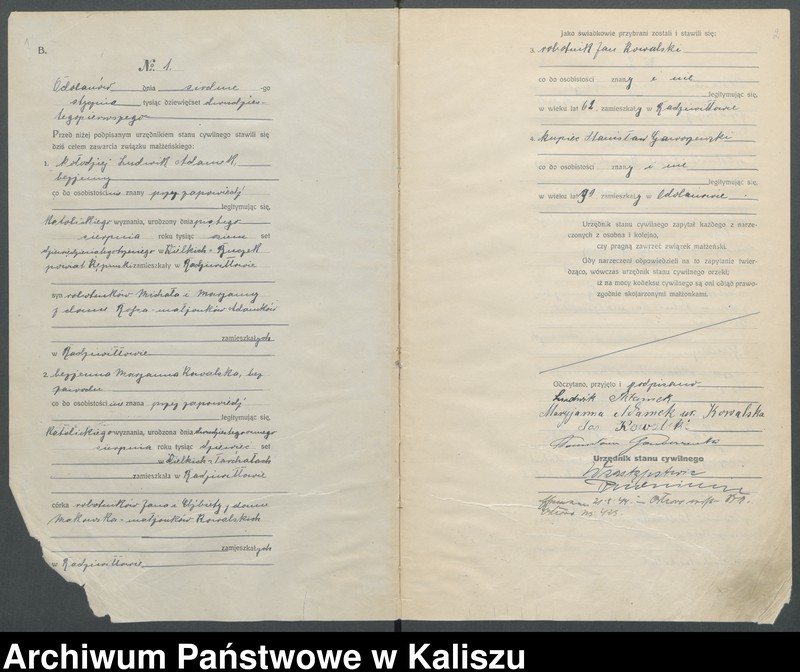 B.
№ 1.
Odolanów dnia siódme -go
stycznia tysiąc dziewięćset dwudzies-
tegopierwszego
Przed niżej podpisanym urzędnikiem stanu cywilnego stawili się
dziś celem zawarcia związku małżeńskiego:
1. kołodziej Ludwik Adamek,
bezżenny
co do osobistości nie znany przy zapowiedzi
legitymując się,
katolickiego wyznania, urodzony dnia piątego
sierpnia roku tysiąc osiem set
w Wielkich-
powiat zamieszkały w Radziwiłłowie
syn robotników Michała i Maryanny
z domu małżonków Adamków
zamieszkałych
w Radziwiłłowie
2. bezżenna Maryanna Kowalska, bez
zawodu
co do osobistości nie znana przy zapowiedzi
legitymując się,
katolickiego wyznania, urodzona dnia
sierpnia roku tysiąc dziewięć set
w Wielkich-
zamieszkała w Radziwiłłowie
córka robotników Jana i Elżbiety z domu
Makowska-małżonków Kowalskich
zamieszkałych
w Radziwiłłowie
2
Jako świadkowie przybrani zostali i stawili się:
3. robotnik Jan Kowalski
co do osobistości znany i nie
legitymując się,
w wieku lat 62, zamieszkały w Radziwiłłowie
4. kupiec Stanisław
co do osobistości znany i nie
legitymując się,
w wieku lat zamieszkały w Odolanowie.
Urzędnik stanu cywilnego zapytał każdego a narze-
czonych z osobna i kolejna,
czy pragną zawrzeć związek małżeński.
Gdy narzeczeni odpowiedzieli na to zapytanie twier-
dząco, wówczas urzędnik stanu cywilnego orzekł:
iż na mocy kodeksu cywilnego są oni odtąd prawo-
zgodnie skojarzonymi małżonkami.
Odczytano, przyjęto i podpisano
Ludwik Adamek
Maryjanna Adamek ur. Kowalska
Jan Kowalski
Stanisław
Urzędnik stanu cywilnego
W zastępstwie
Archiwum Państwowe w Kaliszu